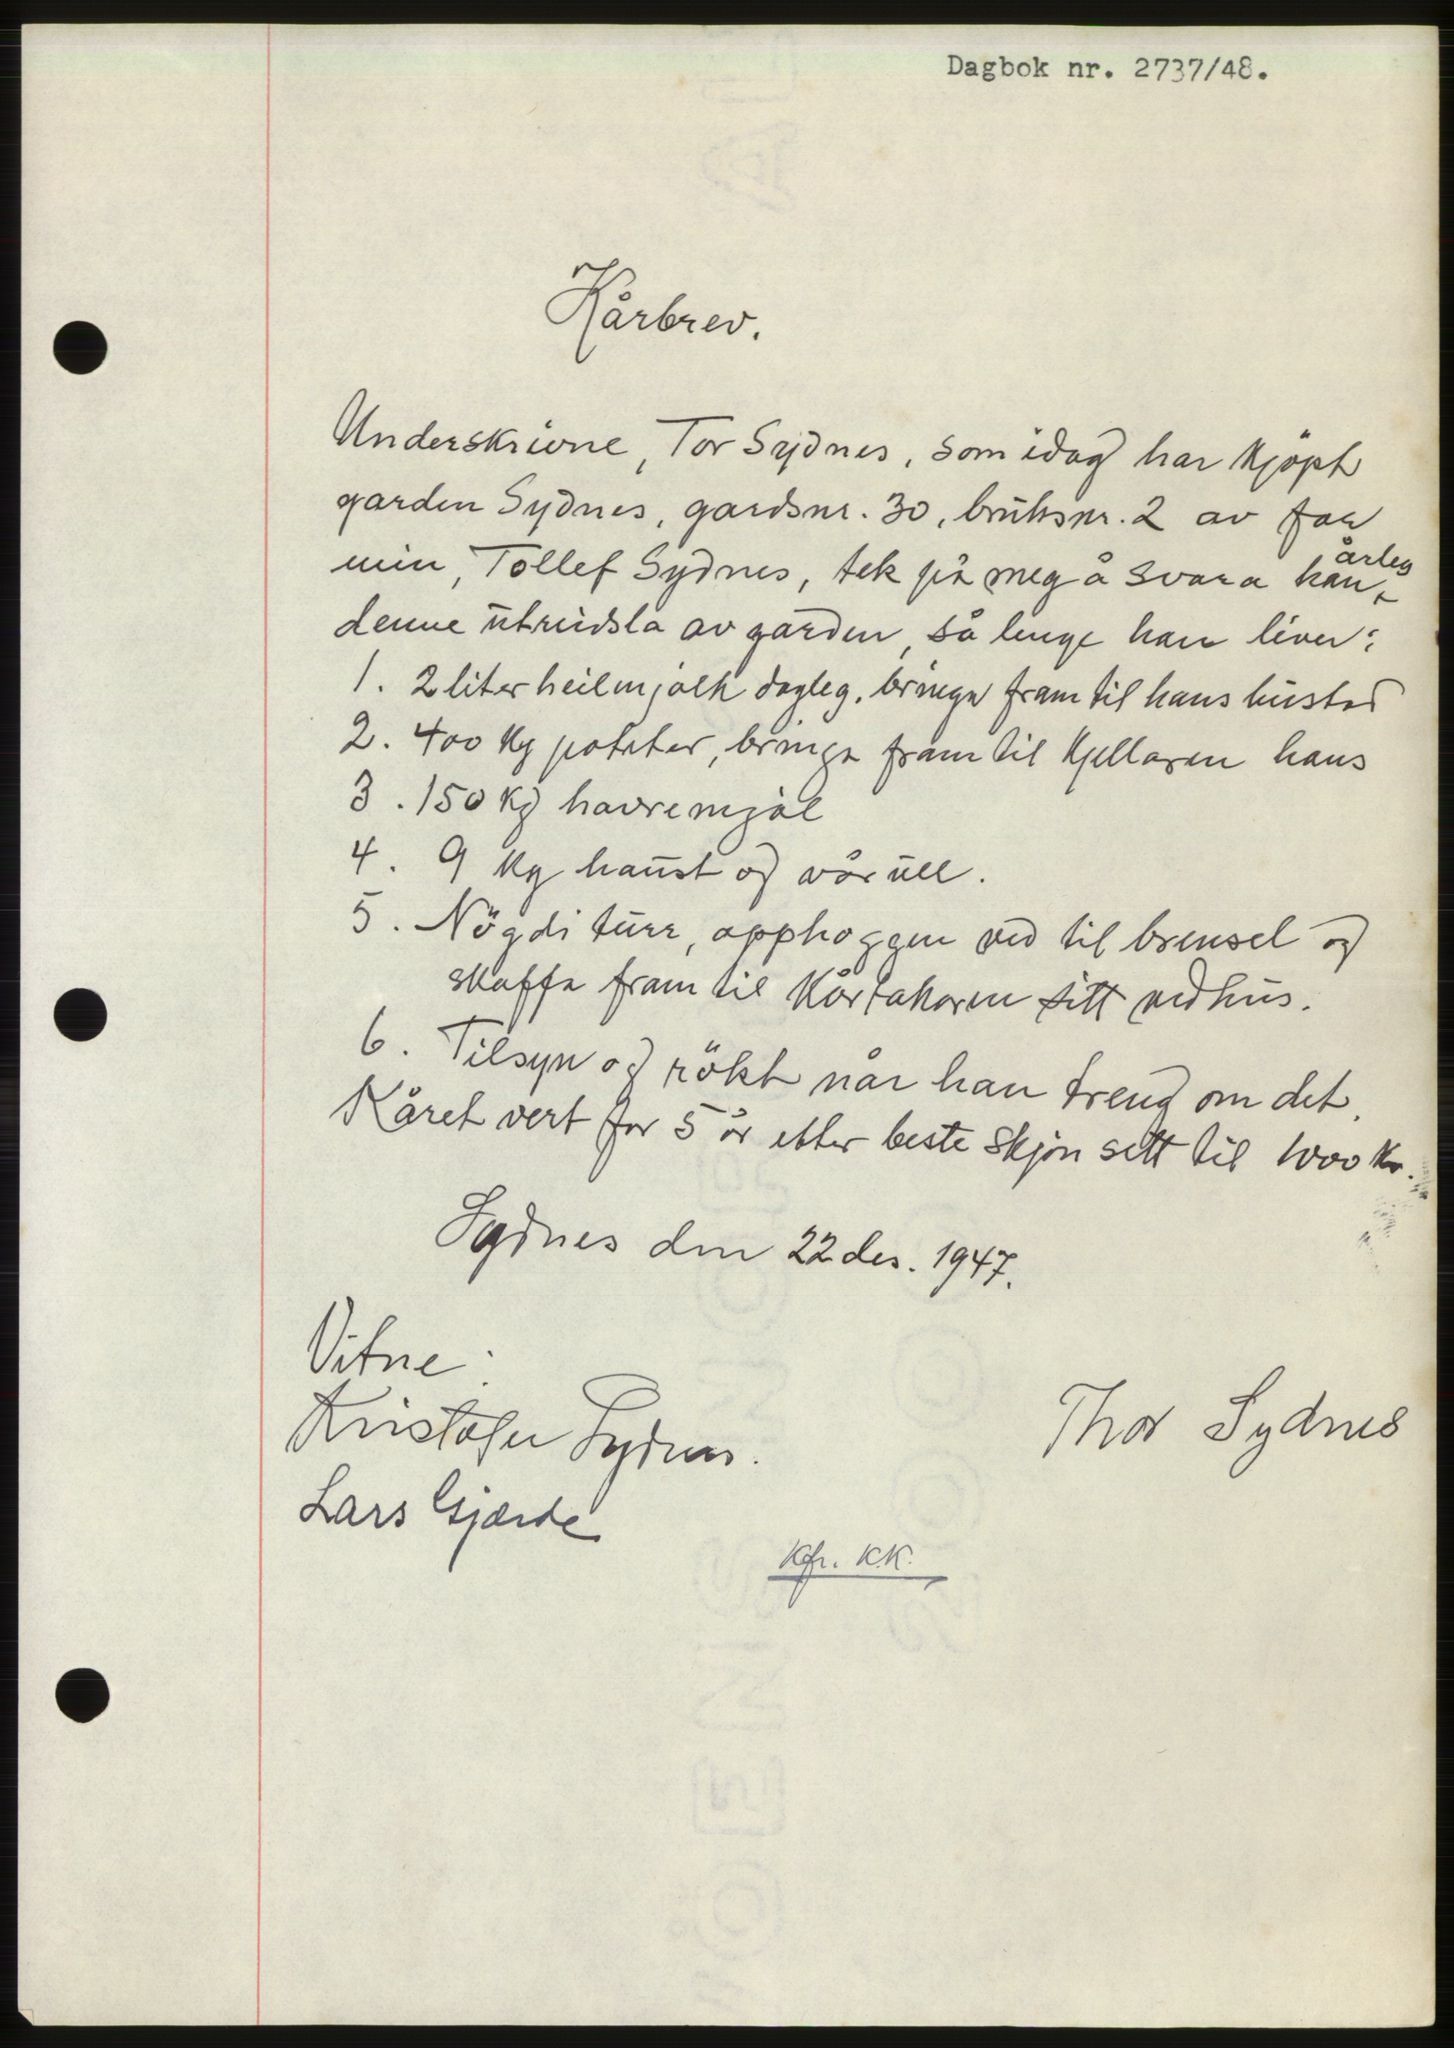 Dagbok nr. 2737/48.
Kårbrev.
Underskrivne, Tor Sydnes, som idag har kjöpt
garden Sydnes, gardsnr. 30, bruksnr. 2 av far
min, Tollef Sydnes, tek på meg å svara han årleg
denne utreidsla av garden, så lenge han liver:
1. 2 liter heilmjølk dagleg, bringa fram til hans bustad
2. 400 kg poteter, bringa fram til kjellaren hans
3. 150 kg havremjøl
4. 9 kg haust og vår ull.
5. Nögdi turr, opphoggen ved til brensel og
skaffa fram til kårtakaren sitt vedhus.
6. Tilsyn og rökt når han treng om det.
Kåret vert for 5 år etter beste skjøn sett til 1000 kr.
Sydnes den 22 des. 1947.
Vitne:
Kristofer Sydnes.
Thor Sydnes
Lars Gjærde
Kfr. K.K.